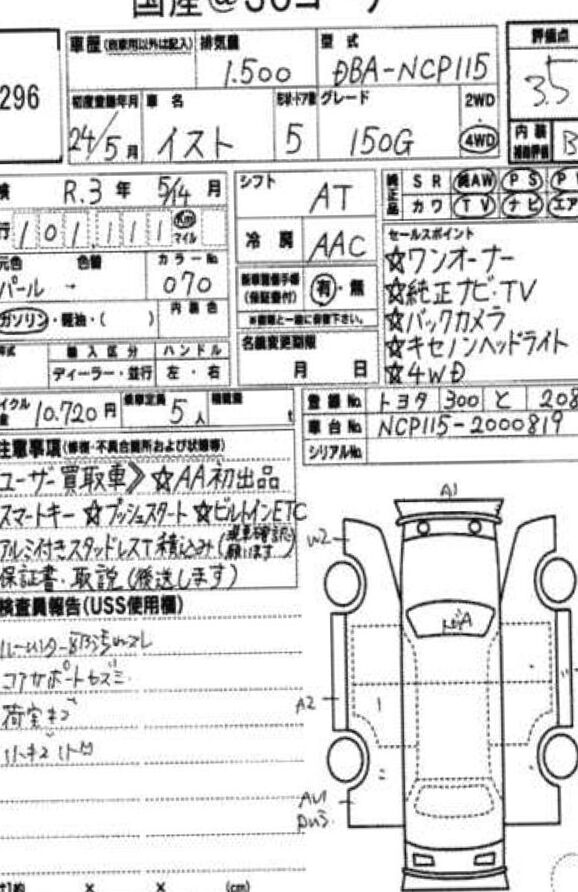 国産@
296
車歴(自家用以外は記入) 排気量 型式 評価点
1.500 DBA-NCP115 3.5
初度登録年月 車名 形状・ドア数 グレード 2WD
24/5月 イスト 5 150G 4WD
内装 B
補助評価
検 R.3年 5/14月
シフト AT
純正品 SR 純AW PS PW
カワ TV ナビ エア
行 101,111 Km マイル
冷房 AAC
セールスポイント
☆ワンオーナー
☆純正ナビ・TV
☆バックカメラ
☆キセノンヘッドライト
☆4WD
元色 色替 カラーNo
パール - 070
新車整備手帳(保証書付) 有・無
ガソリン・軽油・( ) 内装色
名義変更期限
月 日
年式 輸入区分 ハンドル
ディーラー・並行 左・右
イクル 10.720円 乗車定員 5人 積載量 t
登録No. トヨタ 300 と 208
車台No. NCP115-2000819
シリアルNo.
注意事項(修復・不具合箇所および状態等)
ユーザー買取車》☆AA初出品
スマートキー☆プッシュスタート☆ビルトインETC
アルミ付きスタッドレスT積込み(現車確認お願います)
保証書・取説(後送します)
検査員報告(USS使用欄)
コアサポートキズミ
荷室キズ
A1
W2
A2
AU1
× × (cm)